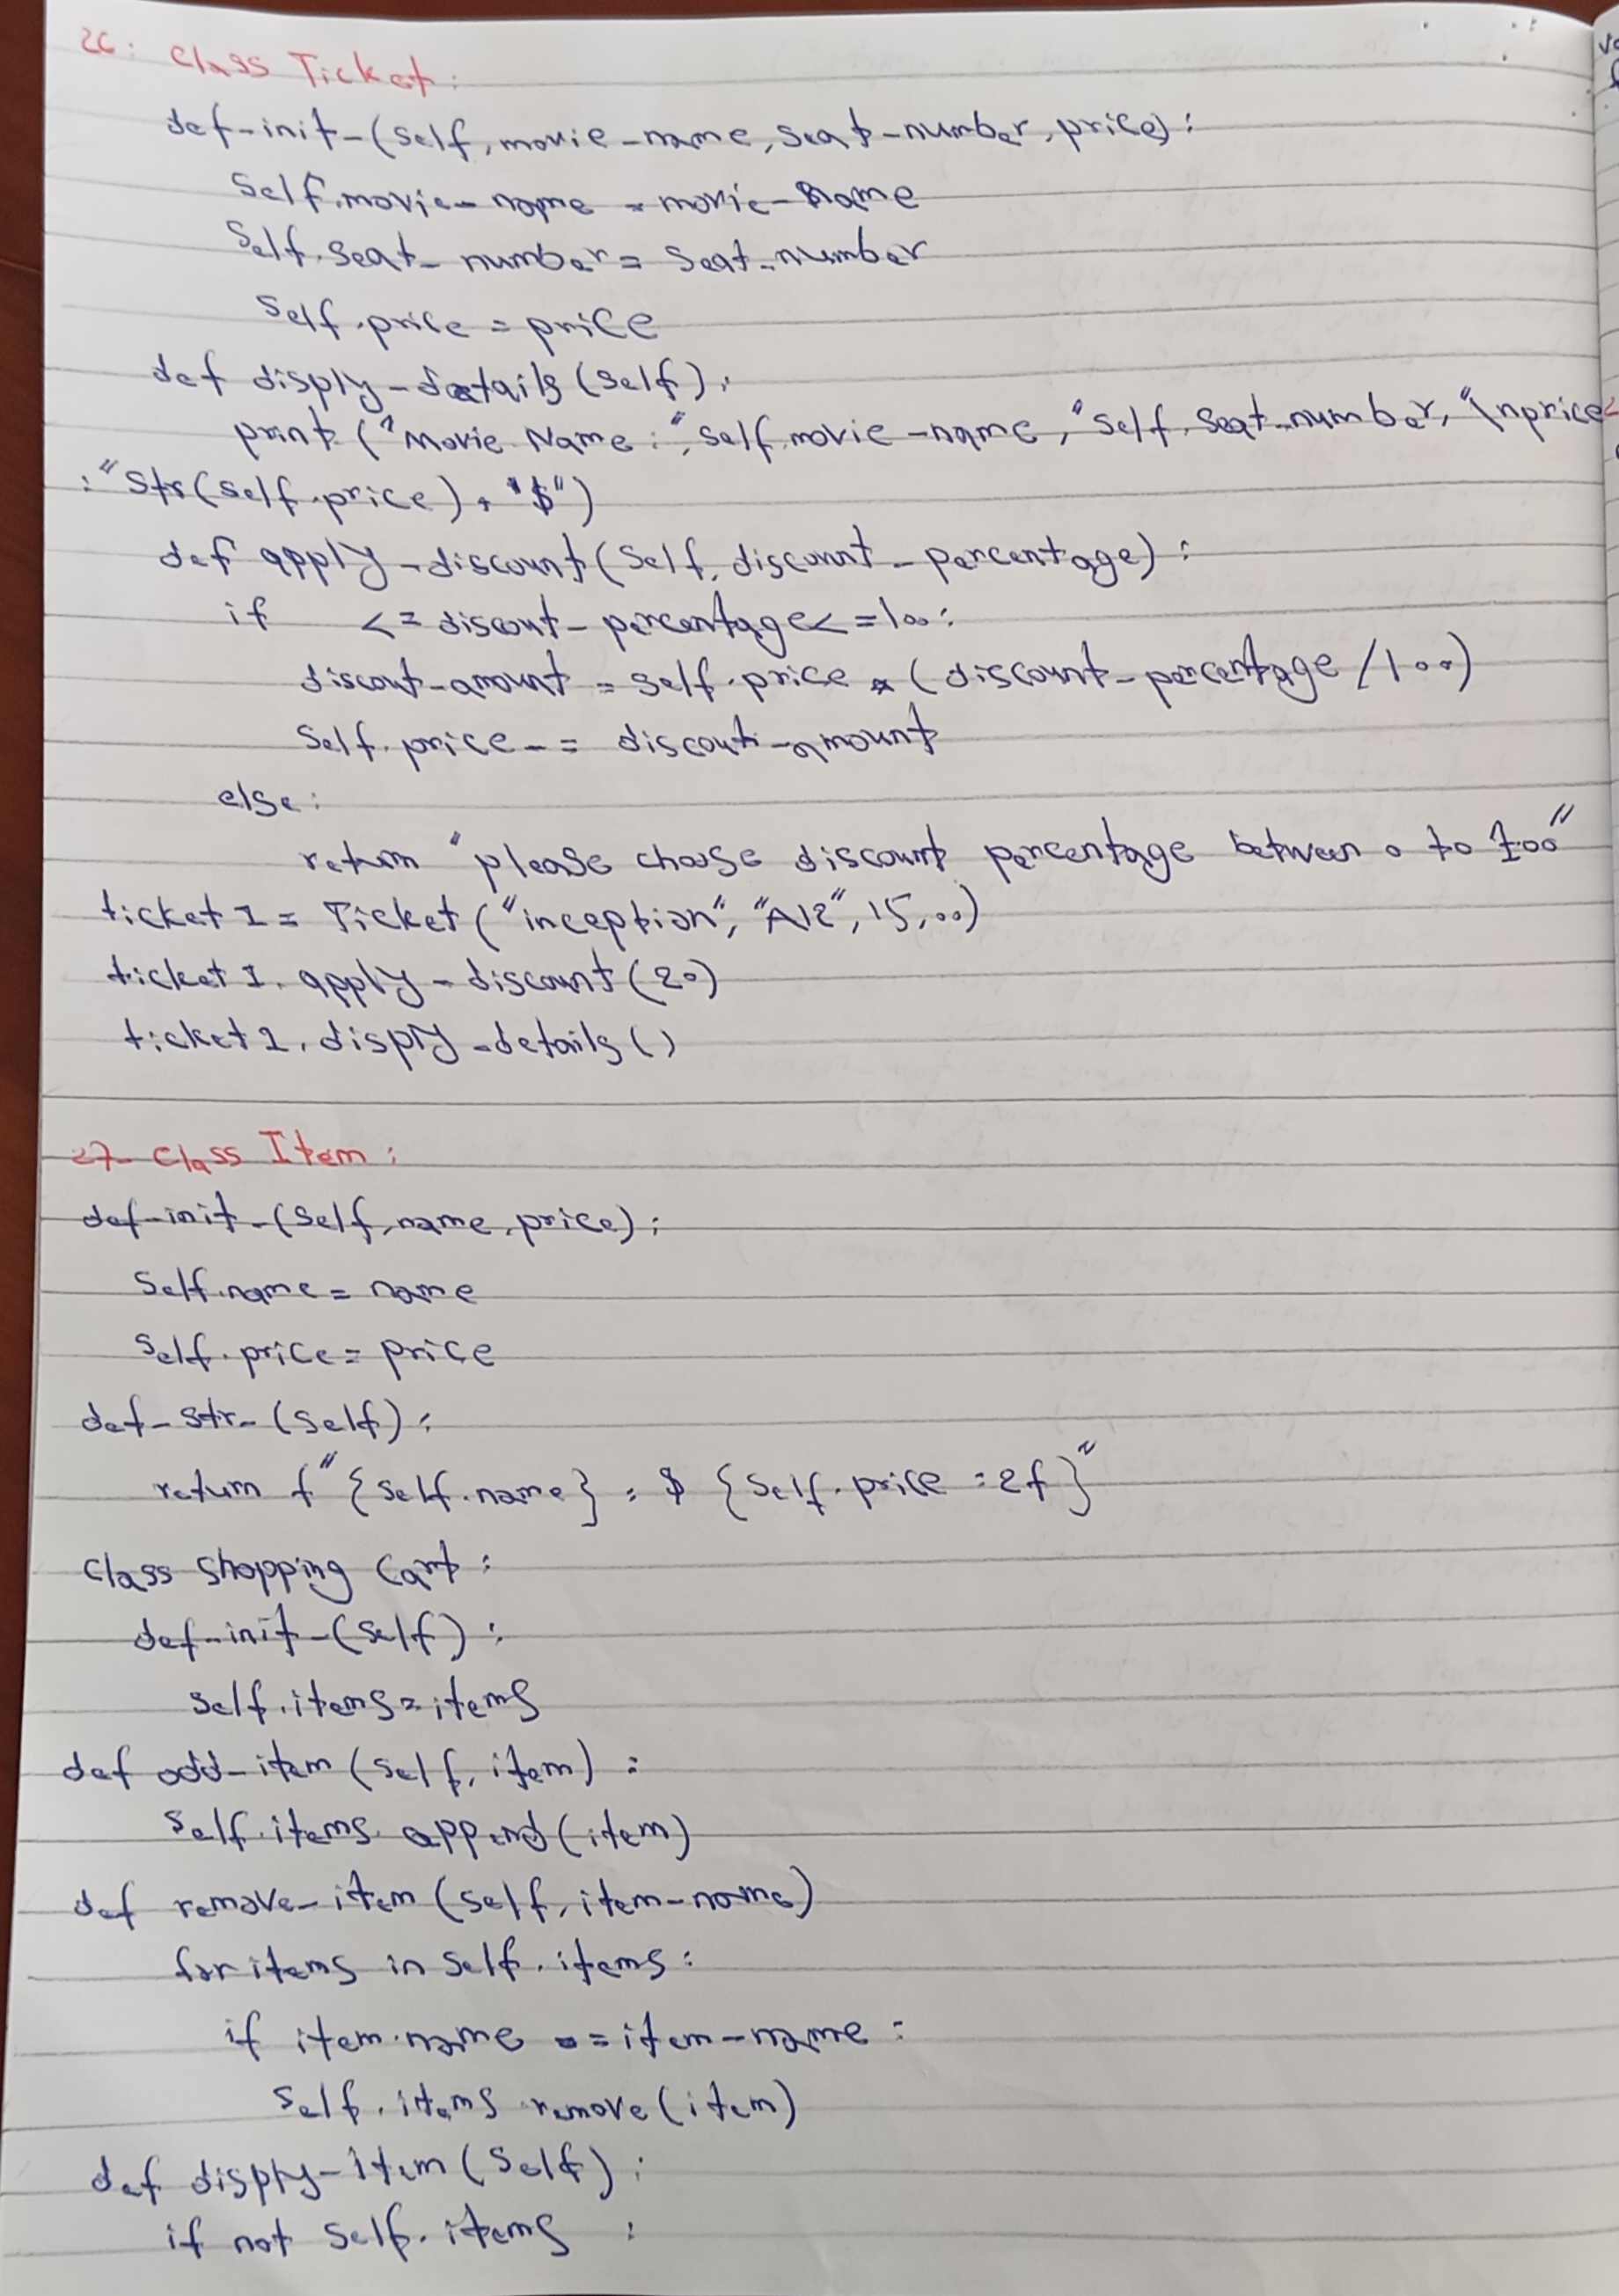 26: Class Ticket:
def-init-(self, movie-name, seat-number, price):
self.movie-name = movie-name
self.seat-number = seat-number
self.price = price
def disply-details(self):
print ("Movie Name:", self.movie-name, "self.seat-number, "\nprice
:"str(self.price), "$")
def apply-discount(self, discount-percentage):
if <= discout-percentage<=100:
discout-amount = self.price * (discount-percentage/100)
self.price-= discout-amount
else:
return "please choose discount percentage between 0 to 100"
ticket1 = Ticket("inception", "A12", 15,00)
ticket1.apply-discount(20)
ticket1.disply-details()
27- Class Item:
def-init-(self, name, price):
self.name = name
self.price = price
def-str-(self):
return f"{self.name} : $ {self.price :2f}"
Class Shopping Cart:
def-init-(self):
self.items=items
def add-item(self, item):
self.items.append(item)
def remove-item(self, item-name)
for items in self.items:
if item.name ==item-name:
self.items remove(item)
def disply-item(self):
if not self.items :